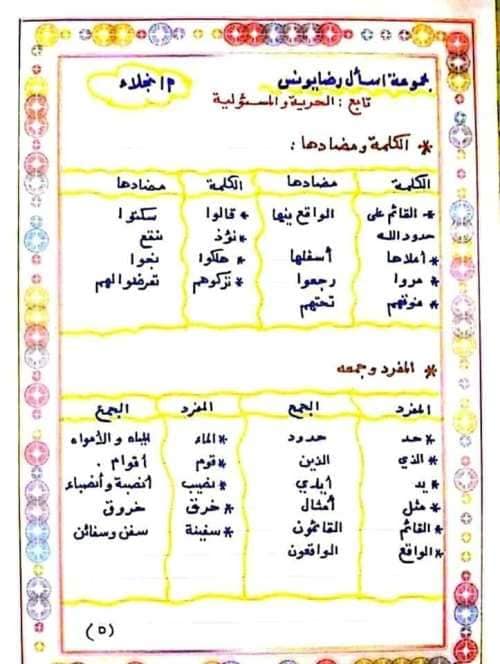 مجموعة اسأل رضا يونس م / نجلاء
تابع : الحرية والمسئولية
* الكلمة ومضادها :
الكلمة مضادها الكلمة مضادها
* القائم على حدود الله الواقع فيها * قالوا سكتوا
* نؤذ ننفع
* أعلاها أسفلها * هلكوا نجوا
* مروا رجعوا * تركوهم تعرضوا لهم
* فوقهم تحتهم
* المفرد وجمعه
المفرد الجمع المفرد الجمع
* حد حدود * الماء المياه والأمواه
* الذي الذين * قوم أقوام
* يد أيادي * نصيب أنصبة وأنصباء
* مثل أمثال * خرق خروق
* القائم القائمون * سفينة سفن وسفائن
* الواقع الواقعون
(٥)